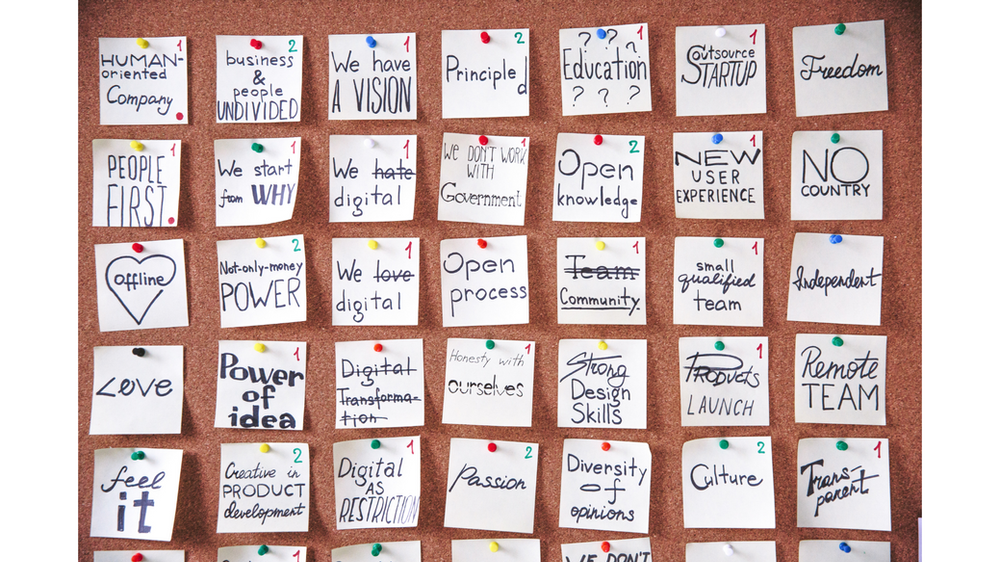 HUMAN- 1
oriented
Company
business 2
&
people
UNDIVIDED
We have 1
A VISION
Principled 2
Education 1
? ? ?
? ? ?
Outsource 1
STARTUP
Freedom
PEOPLE 1
FIRST
We start 1
from WHY
We hate 1
digital
We DON'T WORK 1
WITH
Government
Open 2
knowledge
NEW 1
USER
EXPERIENCE
NO
COUNTRY
offline
Not-only-money 2
POWER
We love 1
digital
Open
process
Team 1
Community.
small 1
qualified
team
Independent
Love
Power 1
of
idea
Digital
Transforma-
tion
Honesty with 1
ourselves
Strong
Design
Skills
Products 1
LAUNCH
Remote
TEAM
feel
it
Creative in 2
PRODUCT
development
Digital 1
AS
RESTRICTION
Passion 2
Diversity
of
opinions
Culture 2
Trans- 1
parent
1
1
WE DON'T